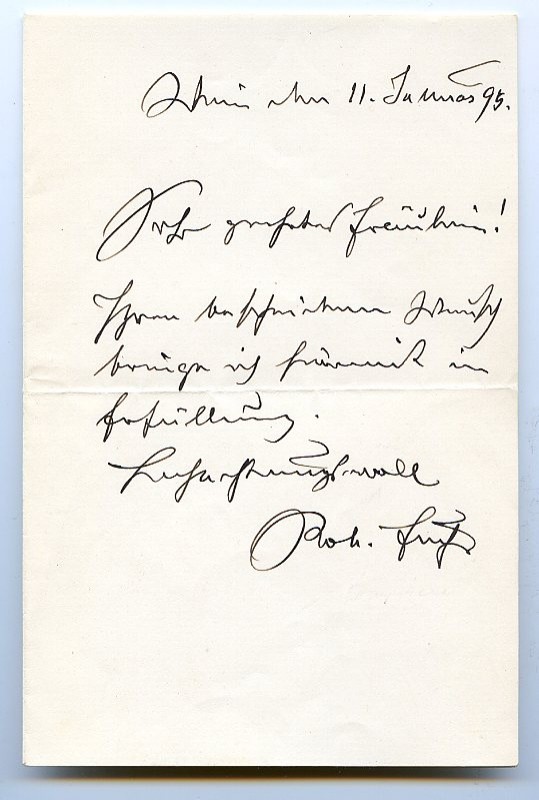 Wien den 11. Januar 95.
Sehr geehrtes Fräulein!
Ihren bescheidenen Wunsch
bringe ich hiermit in
Erfüllung.
Hochachtungsvoll
Rob. Fuchs